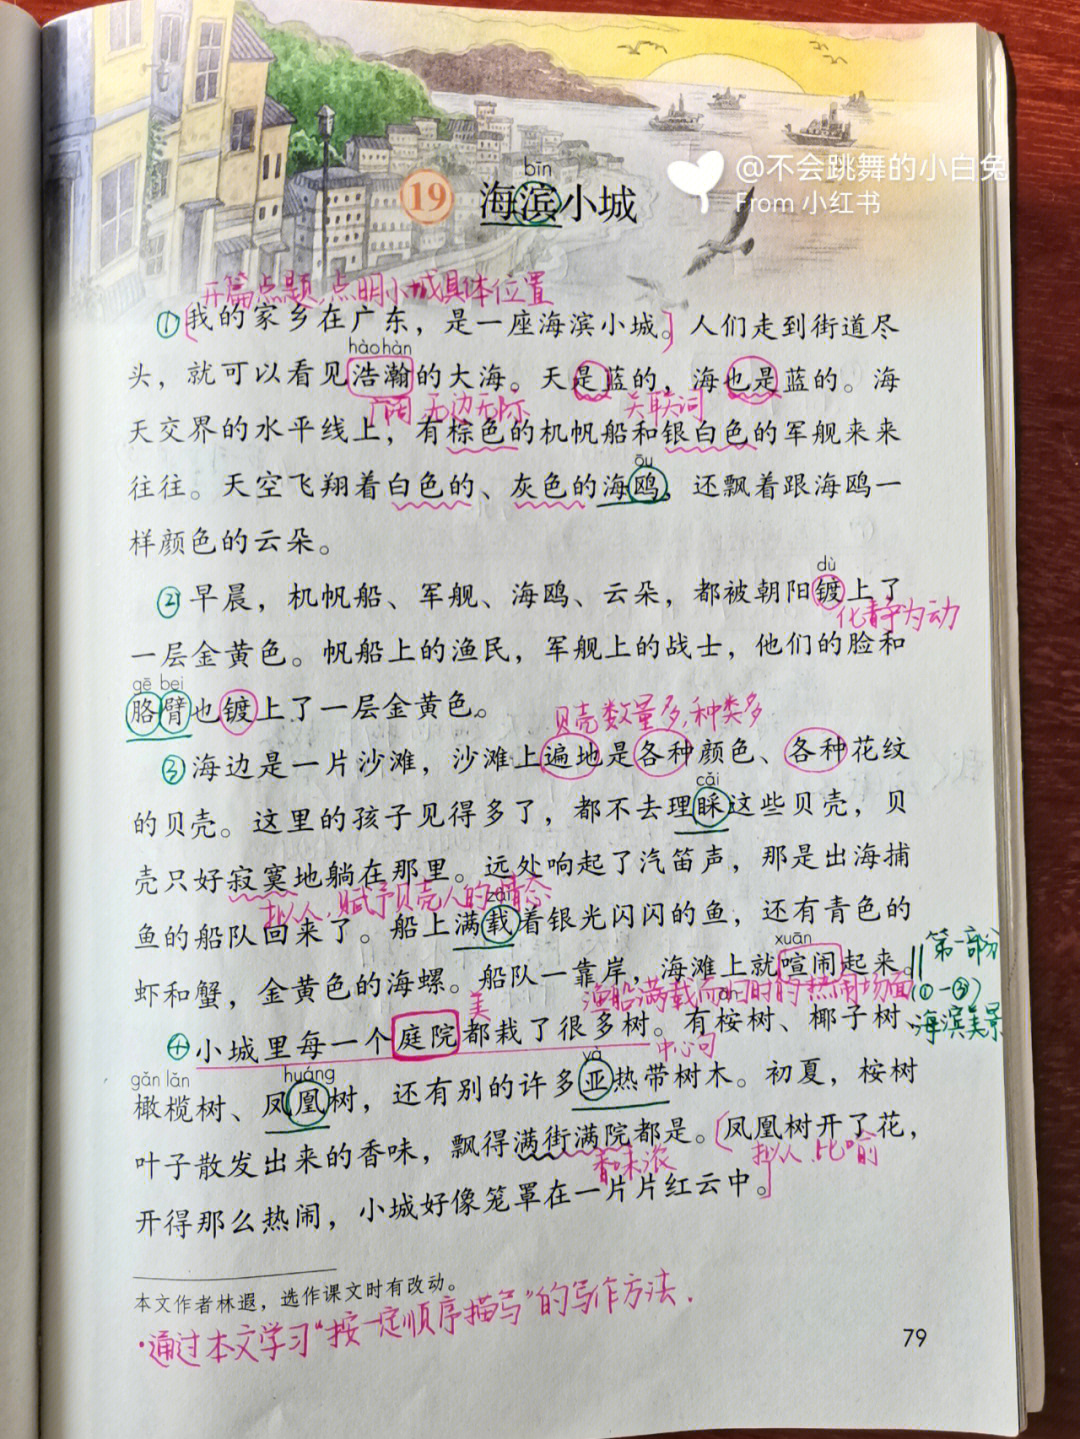 @不会跳舞的小白兔
From 小红书
bīn
19 海滨小城
开篇点题,点明小城具体位置
①我的家乡在广东，是一座海滨小城。人们走到街道尽
hào hàn
头，就可以看见浩瀚的大海。天是蓝的，海也是蓝的。海
广阔 无边无际 关联词
天交界的水平线上，有棕色的机帆船和银白色的军舰来来
ōu
往往。天空飞翔着白色的、灰色的海鸥，还飘着跟海鸥一
样颜色的云朵。
dù
②早晨，机帆船、军舰、海鸥、云朵，都被朝阳镀上了
化静为动
一层金黄色。帆船上的渔民，军舰上的战士，他们的脸和
gē bei
胳臂也镀上了一层金黄色。
贝壳数量多,种类多
③海边是一片沙滩，沙滩上遍地是各种颜色、各种花纹
cǎi
的贝壳。这里的孩子见得多了，都不去理睬这些贝壳，贝
壳只好寂寞地躺在那里。远处响起了汽笛声，那是出海捕
拟人,赋予贝壳人的情态
zài
鱼的船队回来了。船上满载着银光闪闪的鱼，还有青色的
xuān
虾和蟹，金黄色的海螺。船队一靠岸，海滩上就喧闹起来。
第一部分
(①-③)
海滨美景
渔船满载而归时的热闹场面
美
ān
④小城里每一个庭院都栽了很多树。有桉树、椰子树、
中心句
gǎn lǎn huáng yà
橄榄树、凤凰树，还有别的许多亚热带树木。初夏，桉树
叶子散发出来的香味，飘得满街满院都是。凤凰树开了花，
香味浓 拟人.比喻
开得那么热闹，小城好像笼罩在一片片红云中。
本文作者林遐，选作课文时有改动。
·通过本文学习“按一定顺序描写”的写作方法.
79